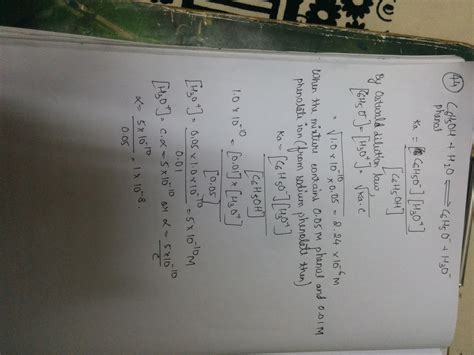 44) C6H5OH + H2O ⇌ C6H5O⁻ + H3O⁺
phenol
Ka = [C6H5O⁻] [H3O⁺]
[C6H5OH]
By Ostwald dilution law,
[C6H5O⁻] = [H3O⁺] = √Ka·C
= √1.0 × 10⁻¹⁰ × 0.05 = 2.24 × 10⁻⁶ M
When the mixture contains 0.05 M phenol and 0.01 M
phenolate ion (from sodium phenolate then)
Ka = [C6H5O⁻] [H3O⁺]
[C6H5OH]
1.0 × 10⁻¹⁰ = [0.01] × [H3O⁺]
[0.05]
[H3O⁺] = 0.05 × 1.0 × 10⁻¹⁰ = 5 × 10⁻¹⁰ M
0.01
[H3O⁺] = C.α = 5 × 10⁻¹⁰ or α = 5 × 10⁻¹⁰
C
α = 5 × 10⁻¹⁰ = 1 × 10⁻⁸.
0.05